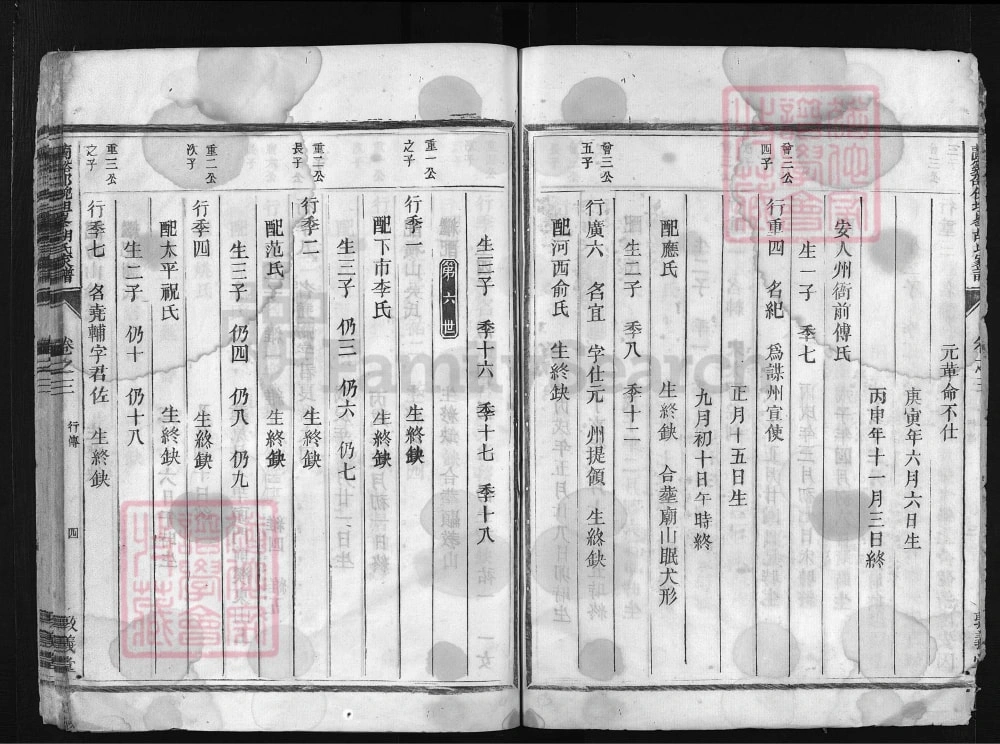 元革命不仕
庚寅年六月六日生
丙申年十一月三日終
安人州衙前傅氏
生一子 季七
曾三公
四子
行重四 名紀 爲諜州宜使
正月十五日生
九月初十日午時終
配應氏 生終缺 合塟廟山眠犬形
生二子 季八 季十二
曾三公
五子
行廣六 名宜 字仕元 州提領 生終缺
配河西俞氏 生終缺
生三子 季十六 季十七 季十八
第六世
重一公
之子
行季一 生終缺
配下市李氏 生終缺
生三子 仍三 仍六 仍七
重二公
長子
行季二 生終缺
配范氏 生終缺
生三子 仍四 仍八 仍九
重二公
次子
行季四 生終缺
配太平祝氏 生終缺
生二子 仍十 仍十八
重三公
之子
行季七 名堯輔字君佐 生終缺
卷之三
行傳
四
敦義堂
FamilySearch